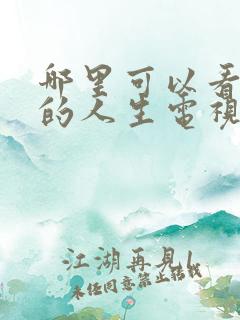 哪里可以看
的人生電視
江湖再見
未经同意禁止转载